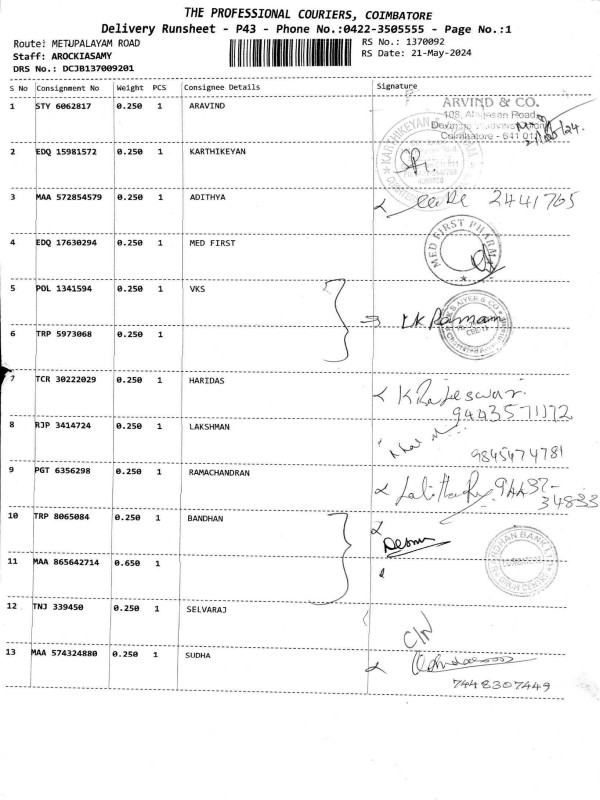 THE PROFESSIONAL COURIERS, COIMBATORE
Delivery Runsheet - P43 - Phone No.:0422-3505555 - Page No.:1
Route: METUPALAYAM ROAD RS No.: 1370092
Staff: AROCKIASAMY RS Date: 21-May-2024
DRS No.: DCJB137009201
S No Consignment No Weight PCS Consignee Details Signature
1 STY 6062817 0.250 1 ARAVIND ARVIND & CO.
108,
Coimbatore - 641 011
2 EDQ 15981572 0.250 1 KARTHIKEYAN KARTHIKEYAN
3 MAA 572854579 0.250 1 ADITHYA 2441765
4 EDQ 17630294 0.250 1 MED FIRST MED FIRST PHARMA
5 POL 1341594 0.250 1 VKS
6 TRP 5973068 0.250 1
7 TCR 30222029 0.250 1 HARIDAS K Rajeswari
9443571172
8 RJP 3414724 0.250 1 LAKSHMAN
9845474781
9 PGT 6356298 0.250 1 RAMACHANDRAN 94437-
34833
10 TRP 8065084 0.250 1 BANDHAN BANDHAN BANK LTD
11 MAA 865642714 0.650 1
12 TNJ 339450 0.250 1 SELVARAJ C/N
13 MAA 574324880 0.250 1 SUDHA
7448307449